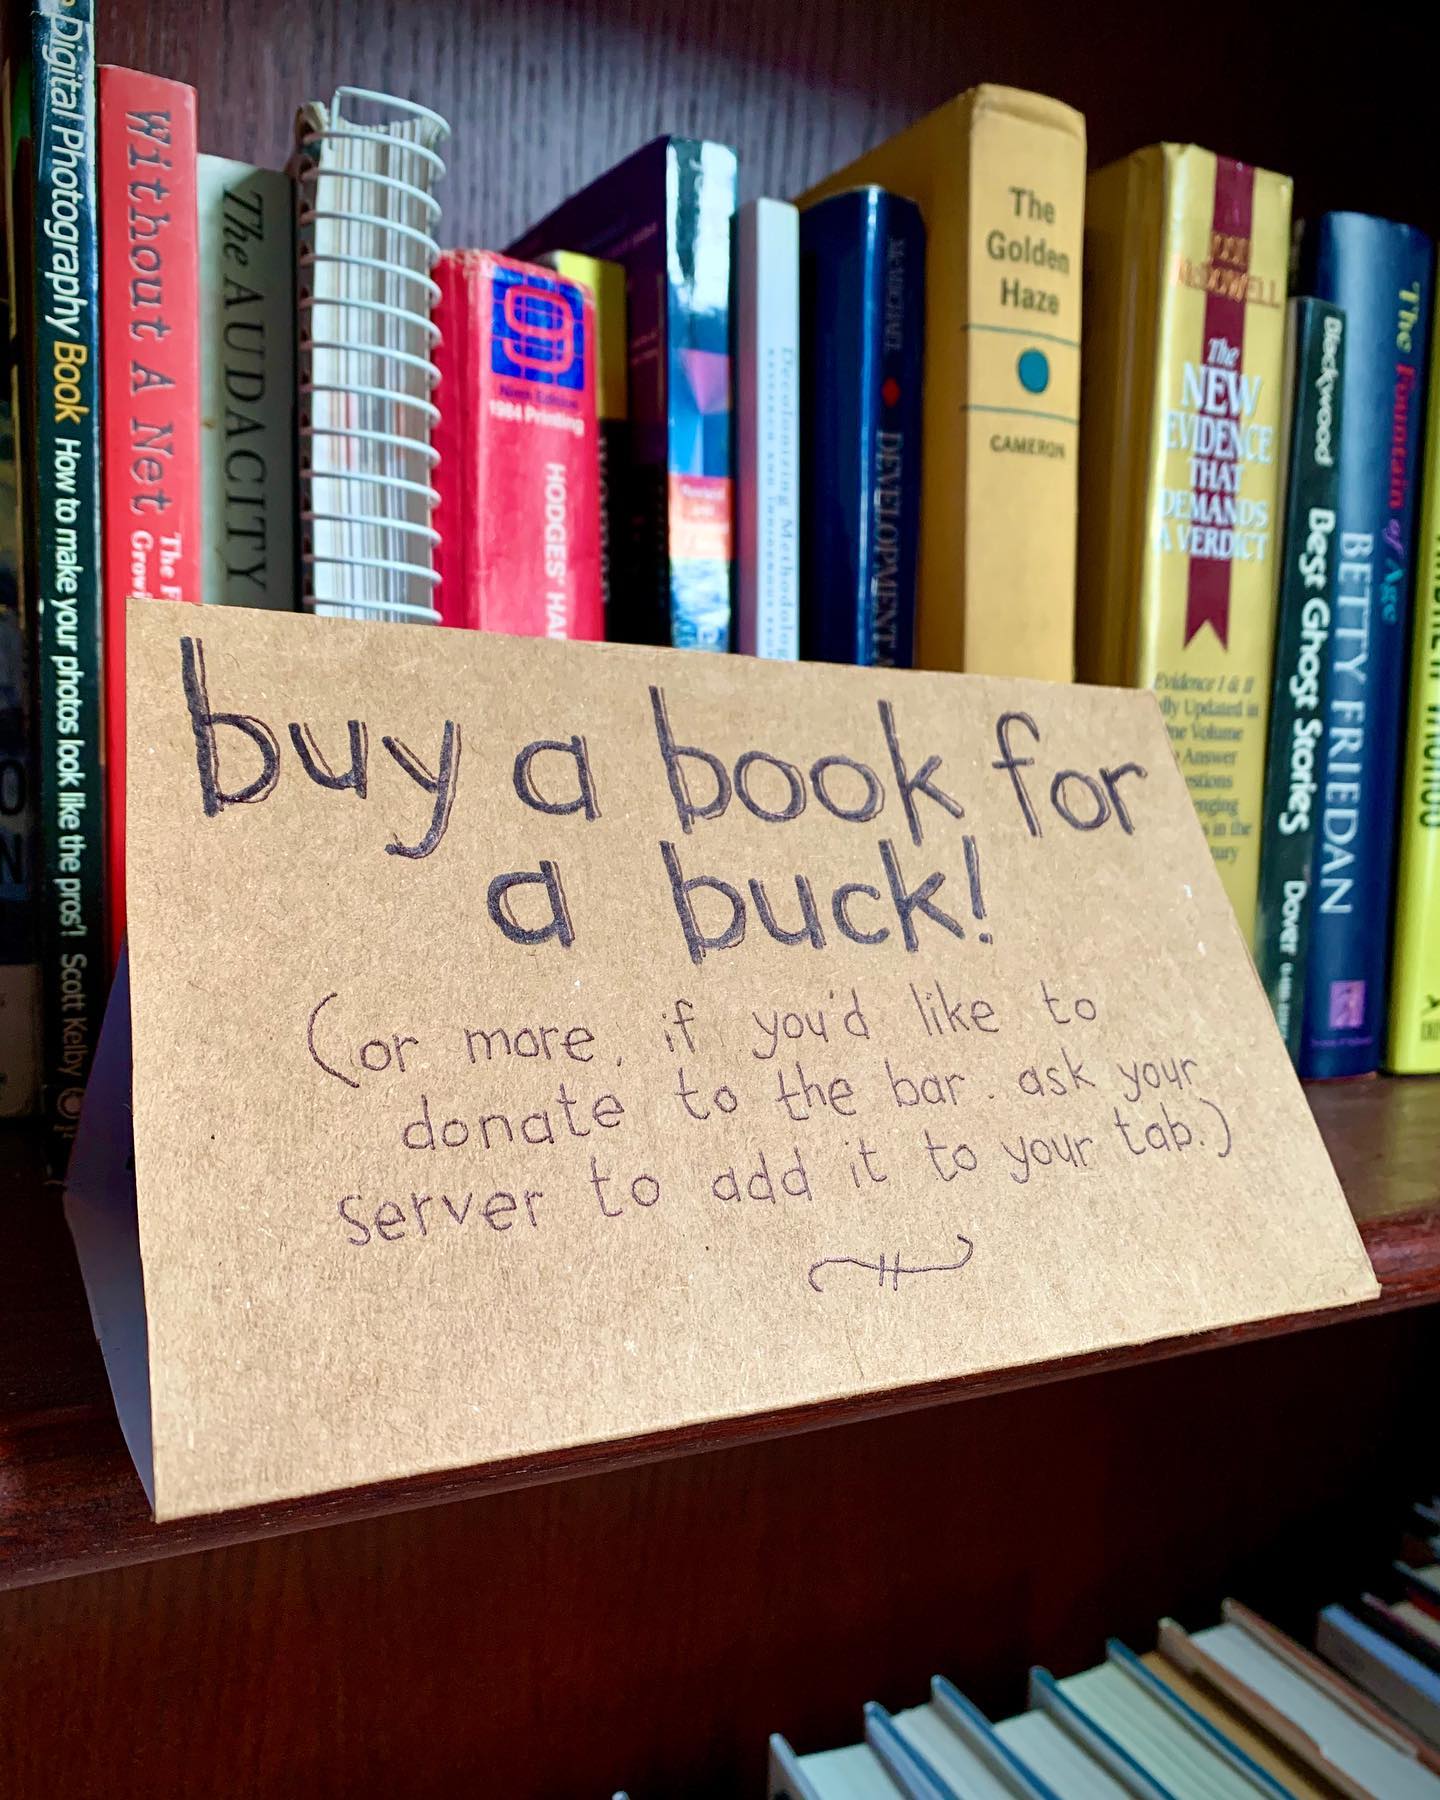 buy a book for
a buck!
(or more, if you'd like to
donate to the bar. ask your
server to add it to your tab.)
Digital Photography Book How to make your photos look like the pros! Scott Kelby
Without A Net
The AUDACITY
9
Ninth Edition
1984 Printing
HODGES' HA
Decolonizing Methodolog
DEVELOPMENT
The
Golden
Haze
CAMERON
McDOWELL
The
NEW
EVIDENCE
THAT
DEMANDS
A VERDICT
Evidence I & II
lly Updated in
ne Volume
Answer
estions
enging
s in the
tury
Blackwood Best Ghost Stories Dover
The Fountain of Age
BETTY FRIEDAN